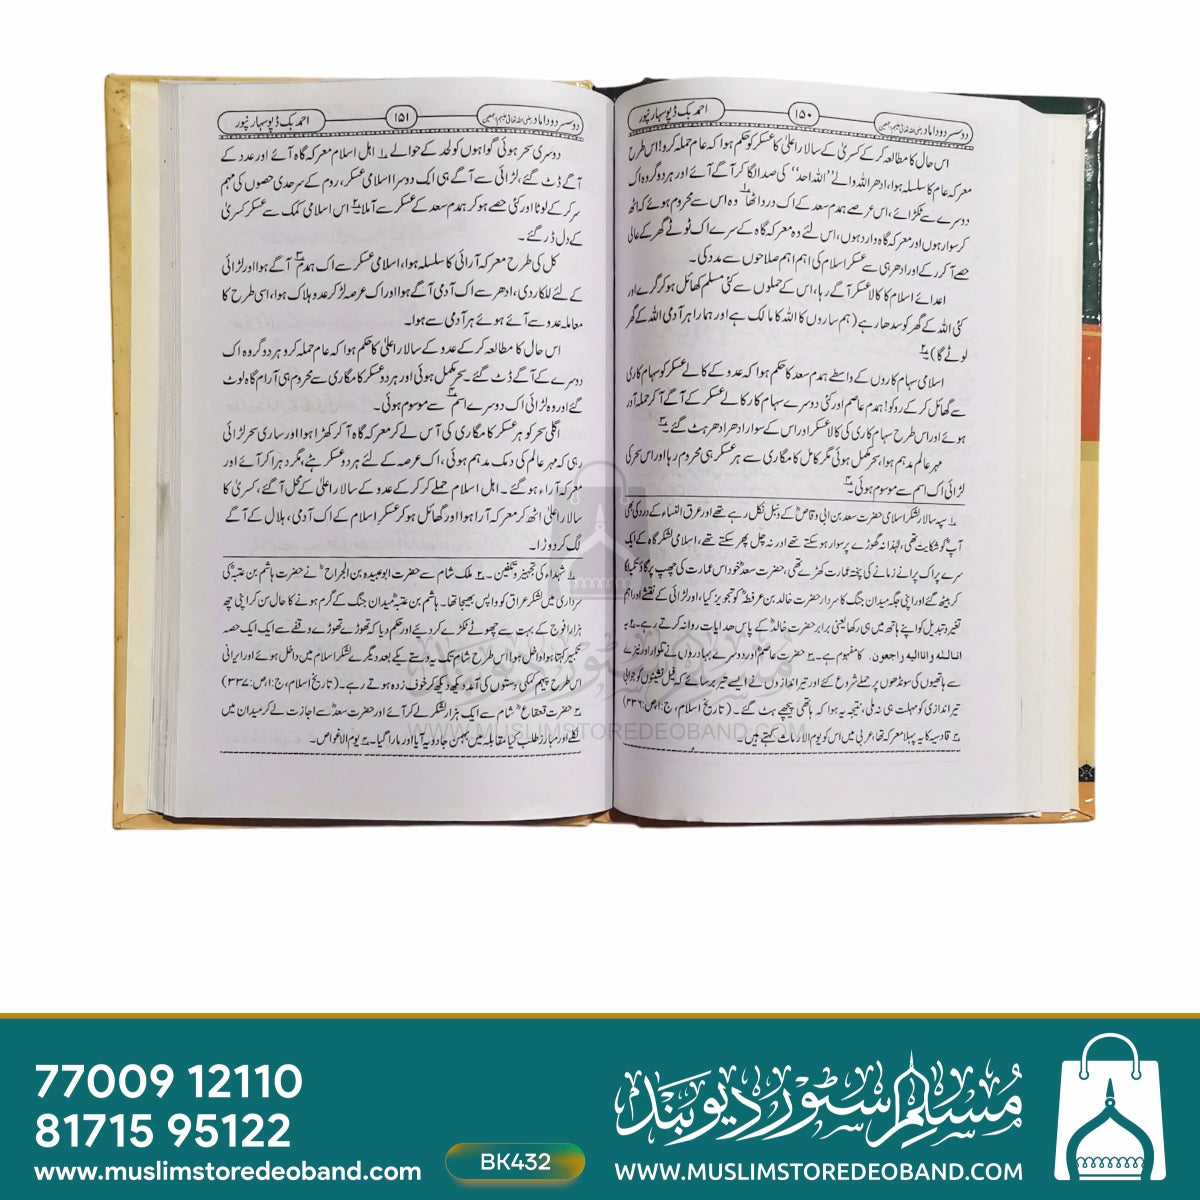 دوسسر دوداماد رضی اللہ تعالیٰ عنہم اجمعین
۱۵۰
احمد بک ڈپو سہارنپور
اس حال کا مطالعہ کر کے کسریٰ کے سالار اعلیٰ کا عسکر کو حکم ہوا کہ عام حملہ کرو! اس طرح
معرکہ عام کا سلسلہ ہوا، ادھر اللہ والے "اللہ احد" کی صدا لگا کر آگے آئے اور ہر دو گروہ اک
دوسرے سے ٹکرائے، اس عرصے ہمدم سعد کے اک درد اٹھا ۱؎ وہ اس سے محروم ہوئے کہ اٹھ
کر سوار ہوں اور معرکہ گاہ وارد ہوں، اس لئے وہ معرکہ گاہ کے سرے اک ٹوٹے گھر کے عالی
حصے آ کر رکے اور ادھر ہی سے عسکر اسلام کی اہم اہم صلاحوں سے مدد کی۔
اعدائے اسلام کا کالا عسکر آگے رہا، اس کے حملوں سے کئی مسلم گھائل ہو کر گرے اور
کئی اللہ کے گھر کو سدھارے (ہم ساروں کا اللہ کا مالک ہے اور ہمارا ہر آدمی اللہ کے گھر
لوٹے گا) ۲؎
اسلامی سہام کاروں کے واسطے ہمدم سعد کا حکم ہوا کہ عدو کے کالے عسکر کو سہام کاری
سے گھائل کر کے روکو! ہمدم عاصم اور کئی دوسرے سہام کار کالے عسکر کے آگے آ کر حملہ آور
ہوئے اور اس طرح سہام کاری کی کالا عسکر اور اس کے سوار ادھر ادھر ہٹ گئے۔ ۳؎
مہر عالم مدہم ہوا، سحر مکمل ہوئی مگر کامل کامگاری سے ہر عسکر ہی محروم رہا اور اس سحر کی
لڑائی اک اسم سے موسوم ہوئی۔ ۴؎
۱؎ سپہ سالار لشکر اسلامی حضرت سعد بن ابی وقاصؓ کے دنبل نکل رہے تھے اور عرق النساء کے درد کی بھی
آپؓ کو شکایت تھی، لہٰذا نہ گھوڑے پر سوار ہو سکتے تھے اور نہ چل پھر سکتے تھے، اسلامی لشکر گاہ کے ایک
سرے پر اک پرانے زمانے کی پختہ عمارت کھڑی تھی، حضرت سعدؓ خود اس عمارت کی چھت پر گاؤ تکیہ لگا
کر بیٹھ گئے اور اپنی جگہ میدان جنگ کا سردار حضرت خالد بن عرفطہؓ کو تجویز کیا، اور لڑائی کے نقشے اور اہم
تغیر و تبدل کو اپنے ہاتھ میں ہی رکھا یعنی برابر حضرت خالدؓ کے پاس ہدایات روانہ کرتے رہے۔ ۲؎ یہ
انا للہ وانا الیہ راجعون۔ کا مفہوم ہے۔ ۳؎ حضرت عاصمؓ اور دوسرے بہادروں نے تلوار اور نیزے
سے ہاتھیوں کی سونڈھوں پر حملے شروع کئے اور تیر اندازوں نے ایسے تیر برسائے کہ فیل نشینوں کو جوابی
تیر اندازی کو مہلت ہی نہ ملی، نتیجہ یہ ہوا کہ ہاتھی پیچھے ہٹ گئے۔ (تاریخ اسلام، ج:۱، ص:۳۳۶)
۴؎ قادسیہ کا یہ پہلا معرکہ تھا، عربی میں اس کو یوم الارماث کہتے ہیں۔
دوسسر دوداماد رضی اللہ تعالیٰ عنہم اجمعین
۱۵۱
احمد بک ڈپو سہارنپور
دوسری سحر ہوئی گواہوں کو لحد کے حوالے ۱؎ اہل اسلام معرکہ گاہ آئے اور عدد کے
آگے ڈٹ گئے، لڑائی سے آگے ہی ایک دوسرا اسلامی عسکر، روم کے سرحدی حصوں کی مہم
سر کر کے لوٹا اور کئی حصے ہو کر ہمدم سعد کے عسکر سے آ ملا ۲؎ اس اسلامی کمک سے عسکر کسریٰ
کے دل ڈر گئے۔
کل کی طرح معرکہ آرائی کا سلسلہ ہوا، اسلامی عسکر سے اک ہمدم ۳؎ آگے ہوا اور لڑائی
کے لئے للکار دی، ادھر سے اک آدمی آگے ہوا اور اک عرصہ لڑ کر عدو ہلاک ہوا، اسی طرح کا
معاملہ عدو سے آئے ہوئے ہر آدمی سے ہوا۔
اس حال کا مطالعہ کر کے عدو کے سالار اعلیٰ کا حکم ہوا کہ عام حملہ کرو ہر دو گروہ اک
دوسرے کے آگے ڈٹ گئے۔ سحر مکمل ہوئی اور ہر دو عسکر کامگاری سے محروم ہی آرام گاہ لوٹ
گئے اور وہ لڑائی اک دوسرے اسم ۴؎ سے موسوم ہوئی۔
اگلی سحر کو ہر عسکر کامگاری کی آس لے کر معرکہ گاہ آ کر کھڑا ہوا اور ساری سحر لڑائی
رہی کہ مہر عالم کی دمک مدہم ہوئی، اک عرصہ کے لئے ہر دو عسکر ہٹے، مگر دہرا کر آئے اور
معرکہ آراء ہو گئے۔ اہل اسلام حملے کر کر کے عدو کے سالار اعلیٰ کے محل آ گئے، کسریٰ کا
سالار اعلیٰ اٹھ کر معرکہ آرا ہوا اور گھائل ہو کر عسکر اسلام کے اک آدمی، ہلال کے آگے
لگ کر دوڑا۔
۱؎ شہداء کی تجہیز و تکفین۔ ۲؎ ملک شام سے حضرت ابو عبیدہ بن الجراحؓ نے حضرت ہاشم بن عتبہؓ کی
سرداری میں لشکر عراق کو واپس بھیجا تھا۔ ہاشم بن عتبہؓ میدان جنگ کے گرم ہونے کا حال سن کر اپنی چھ
ہزار افوج کے بہت سے چھوٹے ٹکڑے کر دیئے اور حکم دیا کہ تھوڑے تھوڑے وقفے سے ایک ایک حصہ
تکبیر کہتا ہوا داخل ہو! اس طرح شام تک یہ دستے یکے بعد دیگرے لشکر اسلام میں داخل ہوئے اور ایرانی
اس طرح پیہم کمکی دستوں کی آمد دیکھ دیکھ کر خوف زدہ ہوتے رہے۔ (تاریخ اسلام، ج:۱، ص:۳۳۷)
۳؎ حضرت قعقاعؓ شام سے ایک ہزار لشکر لے کر آئے اور حضرت سعدؓ سے اجازت لے کر میدان میں
نکلے اور مبارز طلب کیا مقابلہ میں بہمن جادویہ آیا اور مارا گیا۔ ۴؎ یوم الاغواص۔
مسلم سٹور دیوبند
WWW.MUSLIMSTOREDEOBAND.COM
77009 12110
81715 95122
www.muslimstoredeoband.com
BK432
مسلم سٹور دیوبند
WWW.MUSLIMSTOREDEOBAND.COM